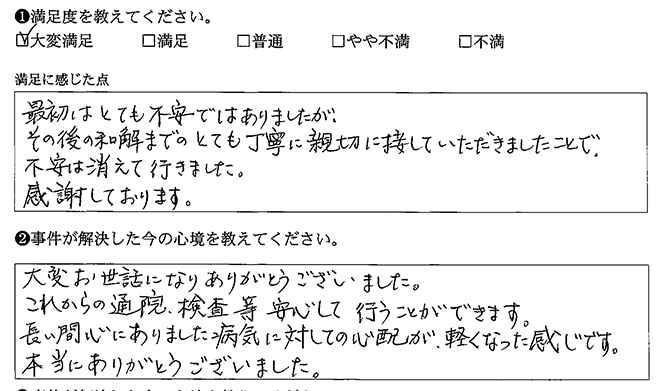 ❶満足度を教えてください。
☑大変満足 □満足 □普通 □やや不満 □不満
満足に感じた点
最初はとても不安ではありましたが、
その後の和解までのとても丁寧に親切に接していただきましたことで、
不安は消えて行きました。
感謝しております。
❷事件が解決した今の心境を教えてください。
大変お世話になりありがとうございました。
これからの通院、検査等安心して行うことができます。
長い間心にありました病気に対しての心配が、軽くなった感じです。
本当にありがとうございました。